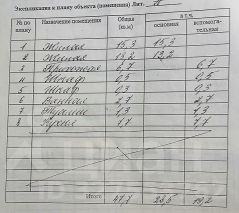 Экспликация к плану объекта (помещения) Лит.
№ по плану Назначение помещения Общая (кв.м) в т.ч.
основная вспомога-тельная
1 Жилая 15,3 15,3
2 Жилая 13,2 13,2
3 Прихожая 6,7 6,7
4 Шкаф 0,5 0,5
5 Шкаф 0,3 0,3
6 Ванная 2,7 2,7
7 Туалет 1,3 1,3
8 Кухня 7,7 7,7
Итого 47,7 28,5 19,2